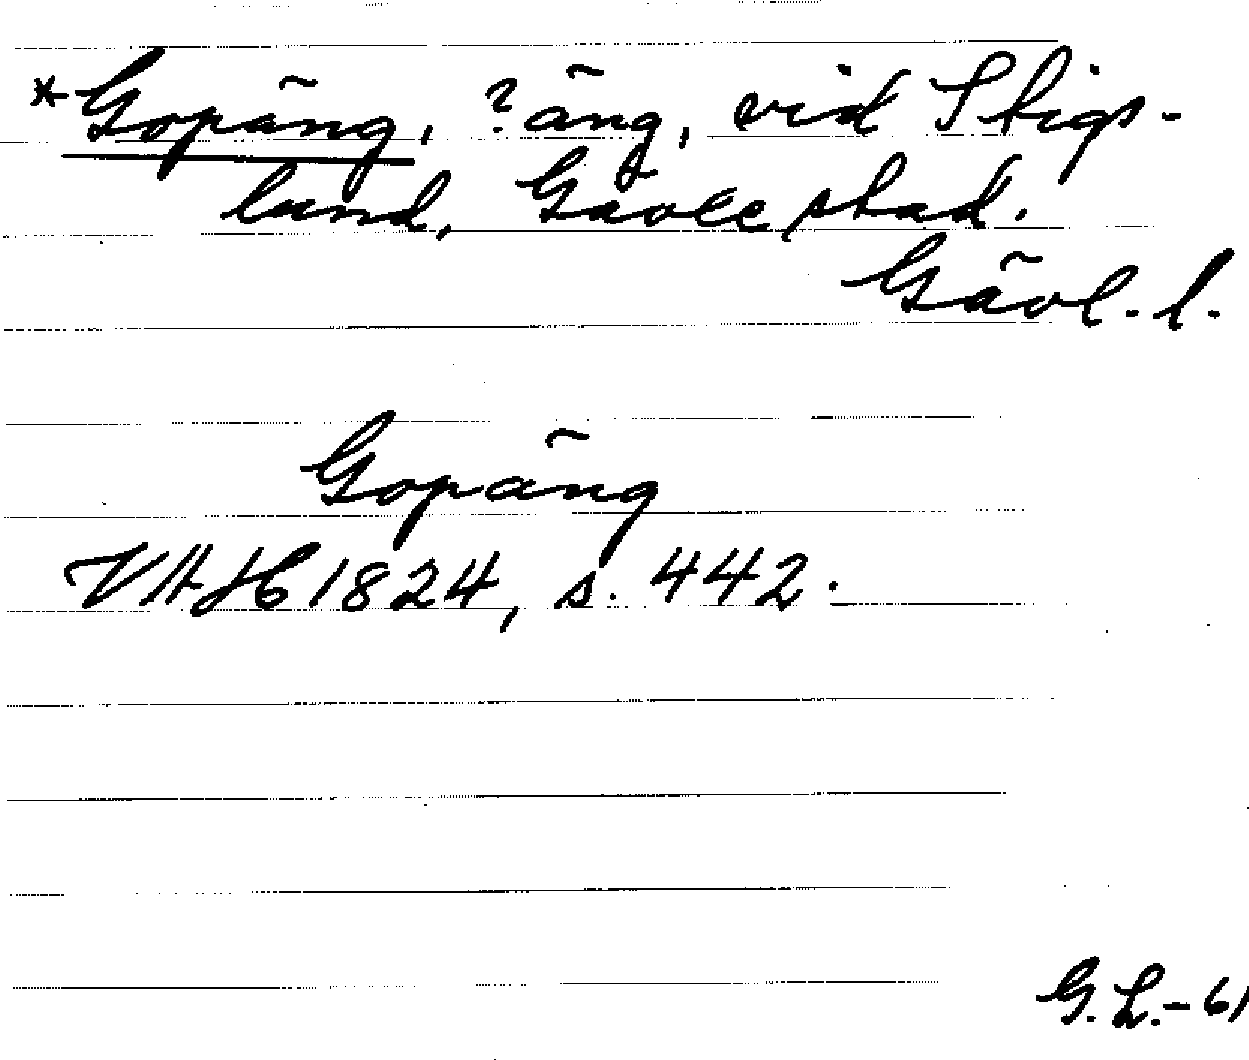 *Gopäng, ?äng, vid Stigs-
lund, Gävle stad.
Gävl. l.
Gopäng
VAH 1824, s. 442.
G. L. - 61